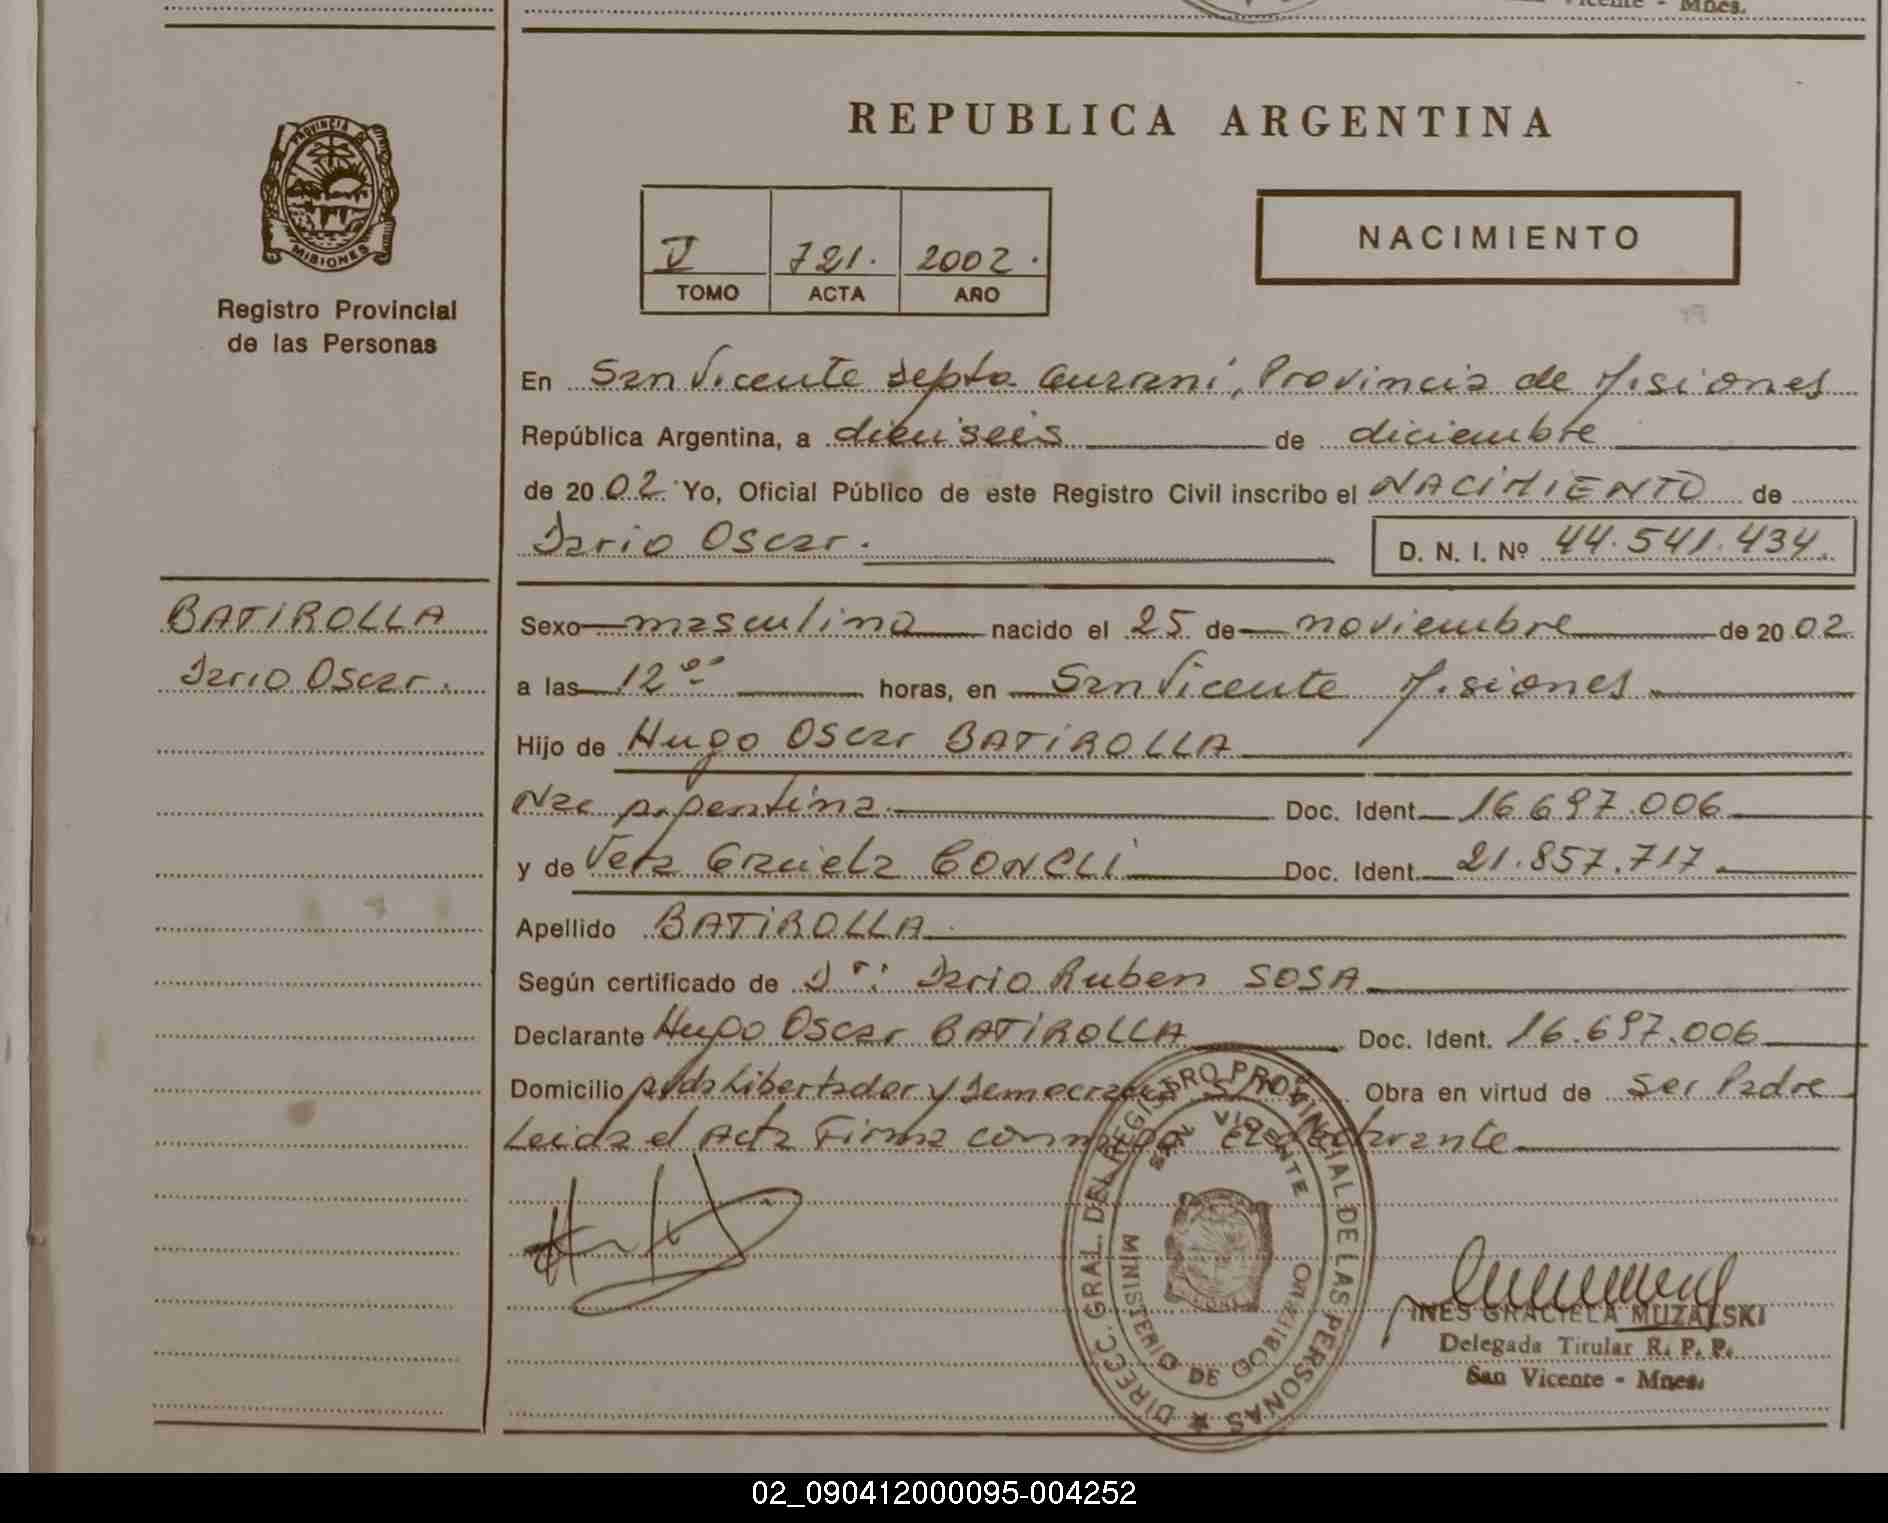 Vicente - Mnes.
REPUBLICA ARGENTINA
PROVINCIA DE
MISIONES
Registro Provincial
de las Personas
V 721. 2002.
TOMO ACTA AÑO
NACIMIENTO
En San Vicente Depto Guarani, Provincia de Misiones
República Argentina, a dieciseis de diciembre
de 2002 Yo, Oficial Público de este Registro Civil inscribo el NACIMIENTO de
Dario Oscar. D. N. I. Nº 44.541.434.
BATIROLLA
Dario Oscar.
Sexo masculino nacido el 25 de noviembre de 2002
a las 12 00 horas, en San Vicente Misiones
Hijo de Hugo Oscar BATIROLLA
Nac Argentina Doc. Ident. 16.697.006
y de Vera Graciela CONCLI Doc. Ident. 21.857.717
Apellido BATIROLLA
Según certificado de Dr: Dario Ruben SOSA
Declarante Hugo Oscar BATIROLLA Doc. Ident. 16.697.006
Domicilio Avda Libertador y Democracia S/N Obra en virtud de Ser Padre
Leida el Acta Firma conmigo El declarante
DIRECC. GRAL. DEL REGISTRO PROVINCIAL DE LAS PERSONAS
SAN VICENTE
MINISTERIO DE GOBIERNO
INES GRACIELA MUZALSKI
Delegada Titular R. P. P.
San Vicente - Mnes.
02_090412000095-004252